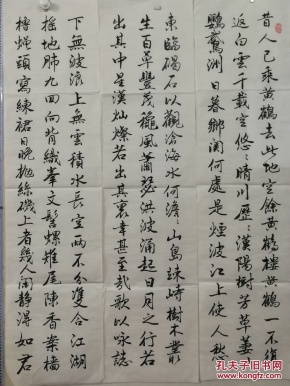 昔人已乘黄鹤去此地空餘黄鹤樓黄鹤一不復
返白雲千載空悠悠晴川歷歷漢陽樹芳草萋萋
鸚鵡洲日暮鄉関何處是煙波江上使人愁
東臨碣石以觀滄海水何澹澹山島竦峙樹木叢
生百草豐茂秋風蕭瑟洪波涌起日月之行若
出其中星漢燦爛若出其裏幸甚至哉歌以咏誌
下無波浪上無雲積水長空兩不分雙合江湖
摇地肺九回向背織峯文髻螺雉尾陳香案
檣蝇頭寫練裙日晚抛絲磯上者幾人閑靜得如君